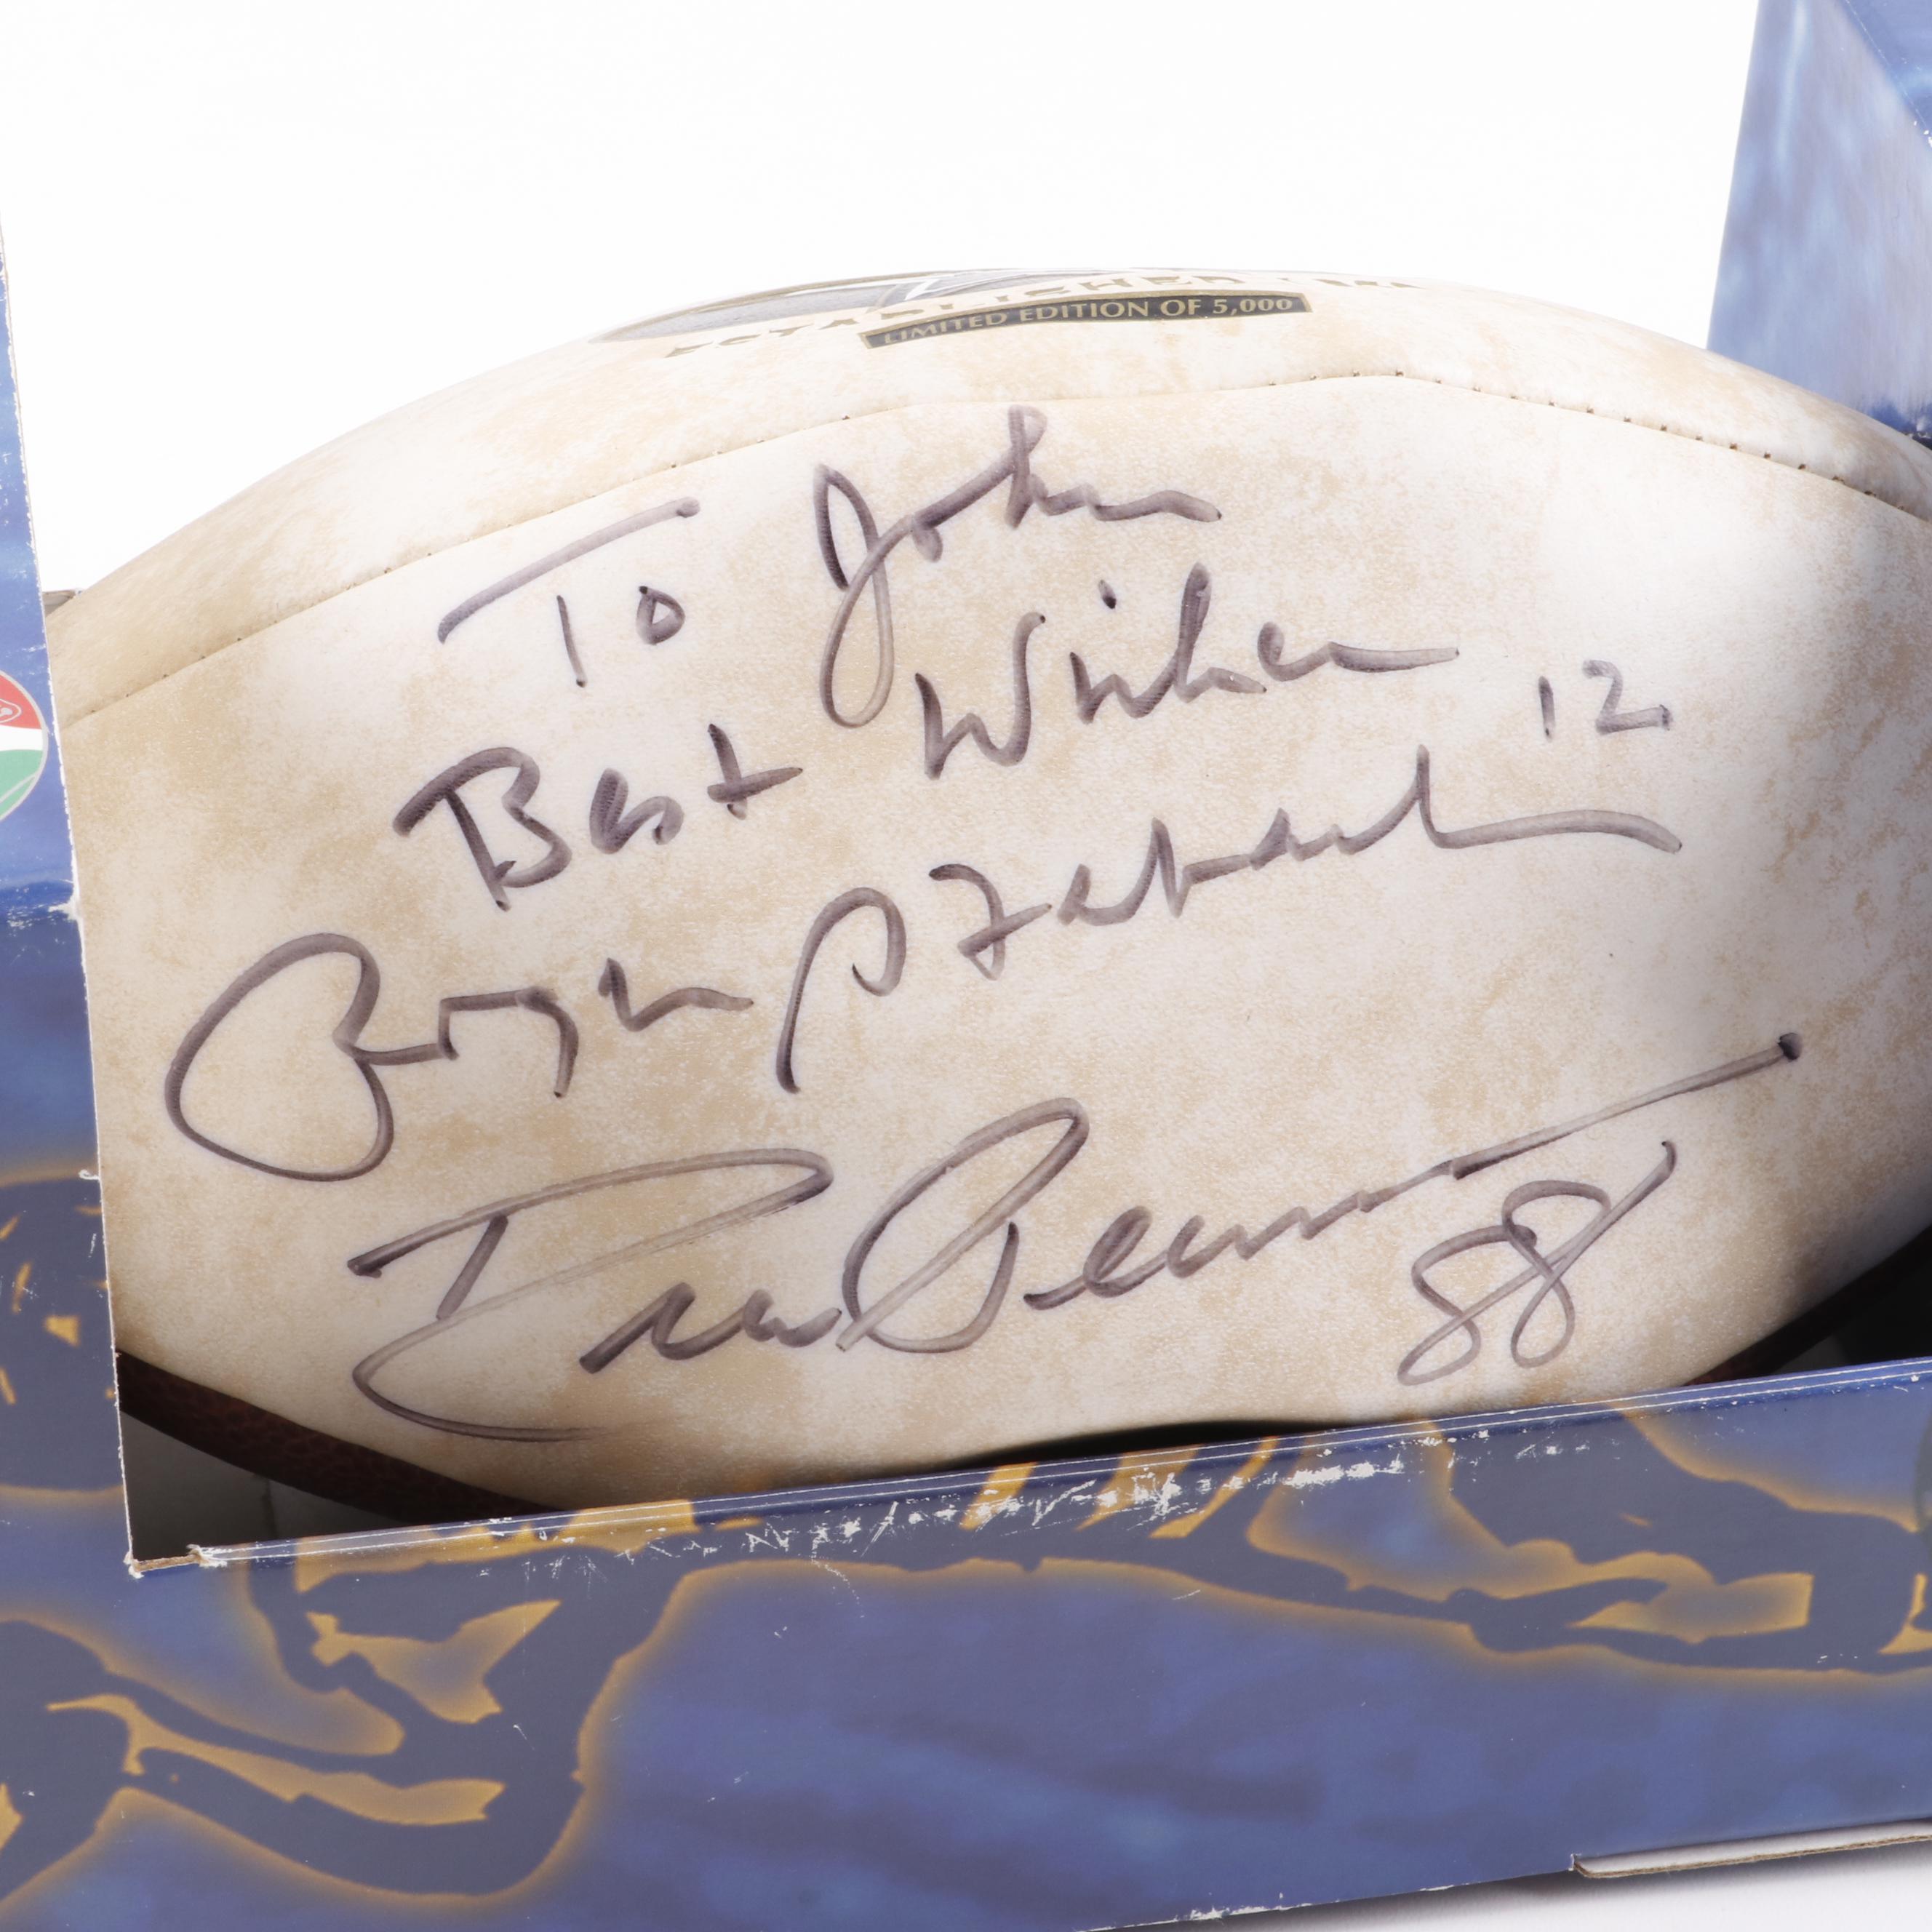 ESTABLISHED
LIMITED EDITION OF 5,000
To John
Best Wishes
12
Roger Staubach
Drew Pearson
88